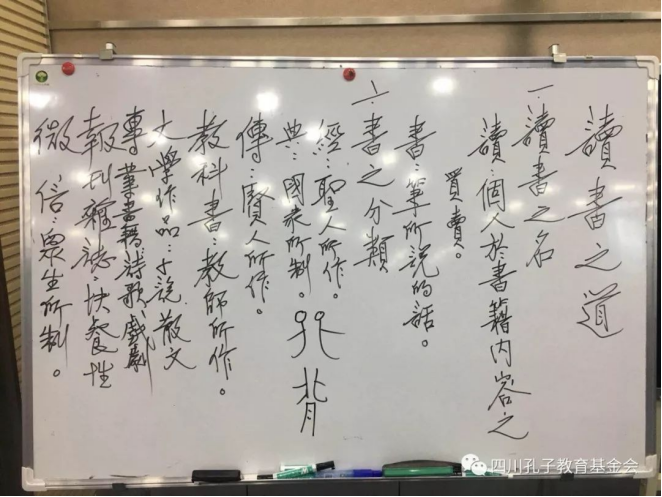 讀書之道
一讀書之名
讀：個人於書籍內容之
買賣。
書：筆所說的話。
二書之分類
經：聖人所作。
典：國家所制。
背
傳：賢人所作。
教科書：教師所作。
文學作品：小說散文
專業書籍詩歌、戲劇
報刊雜誌：快餐性
微信：眾生所制。
四川孔子教育基金会